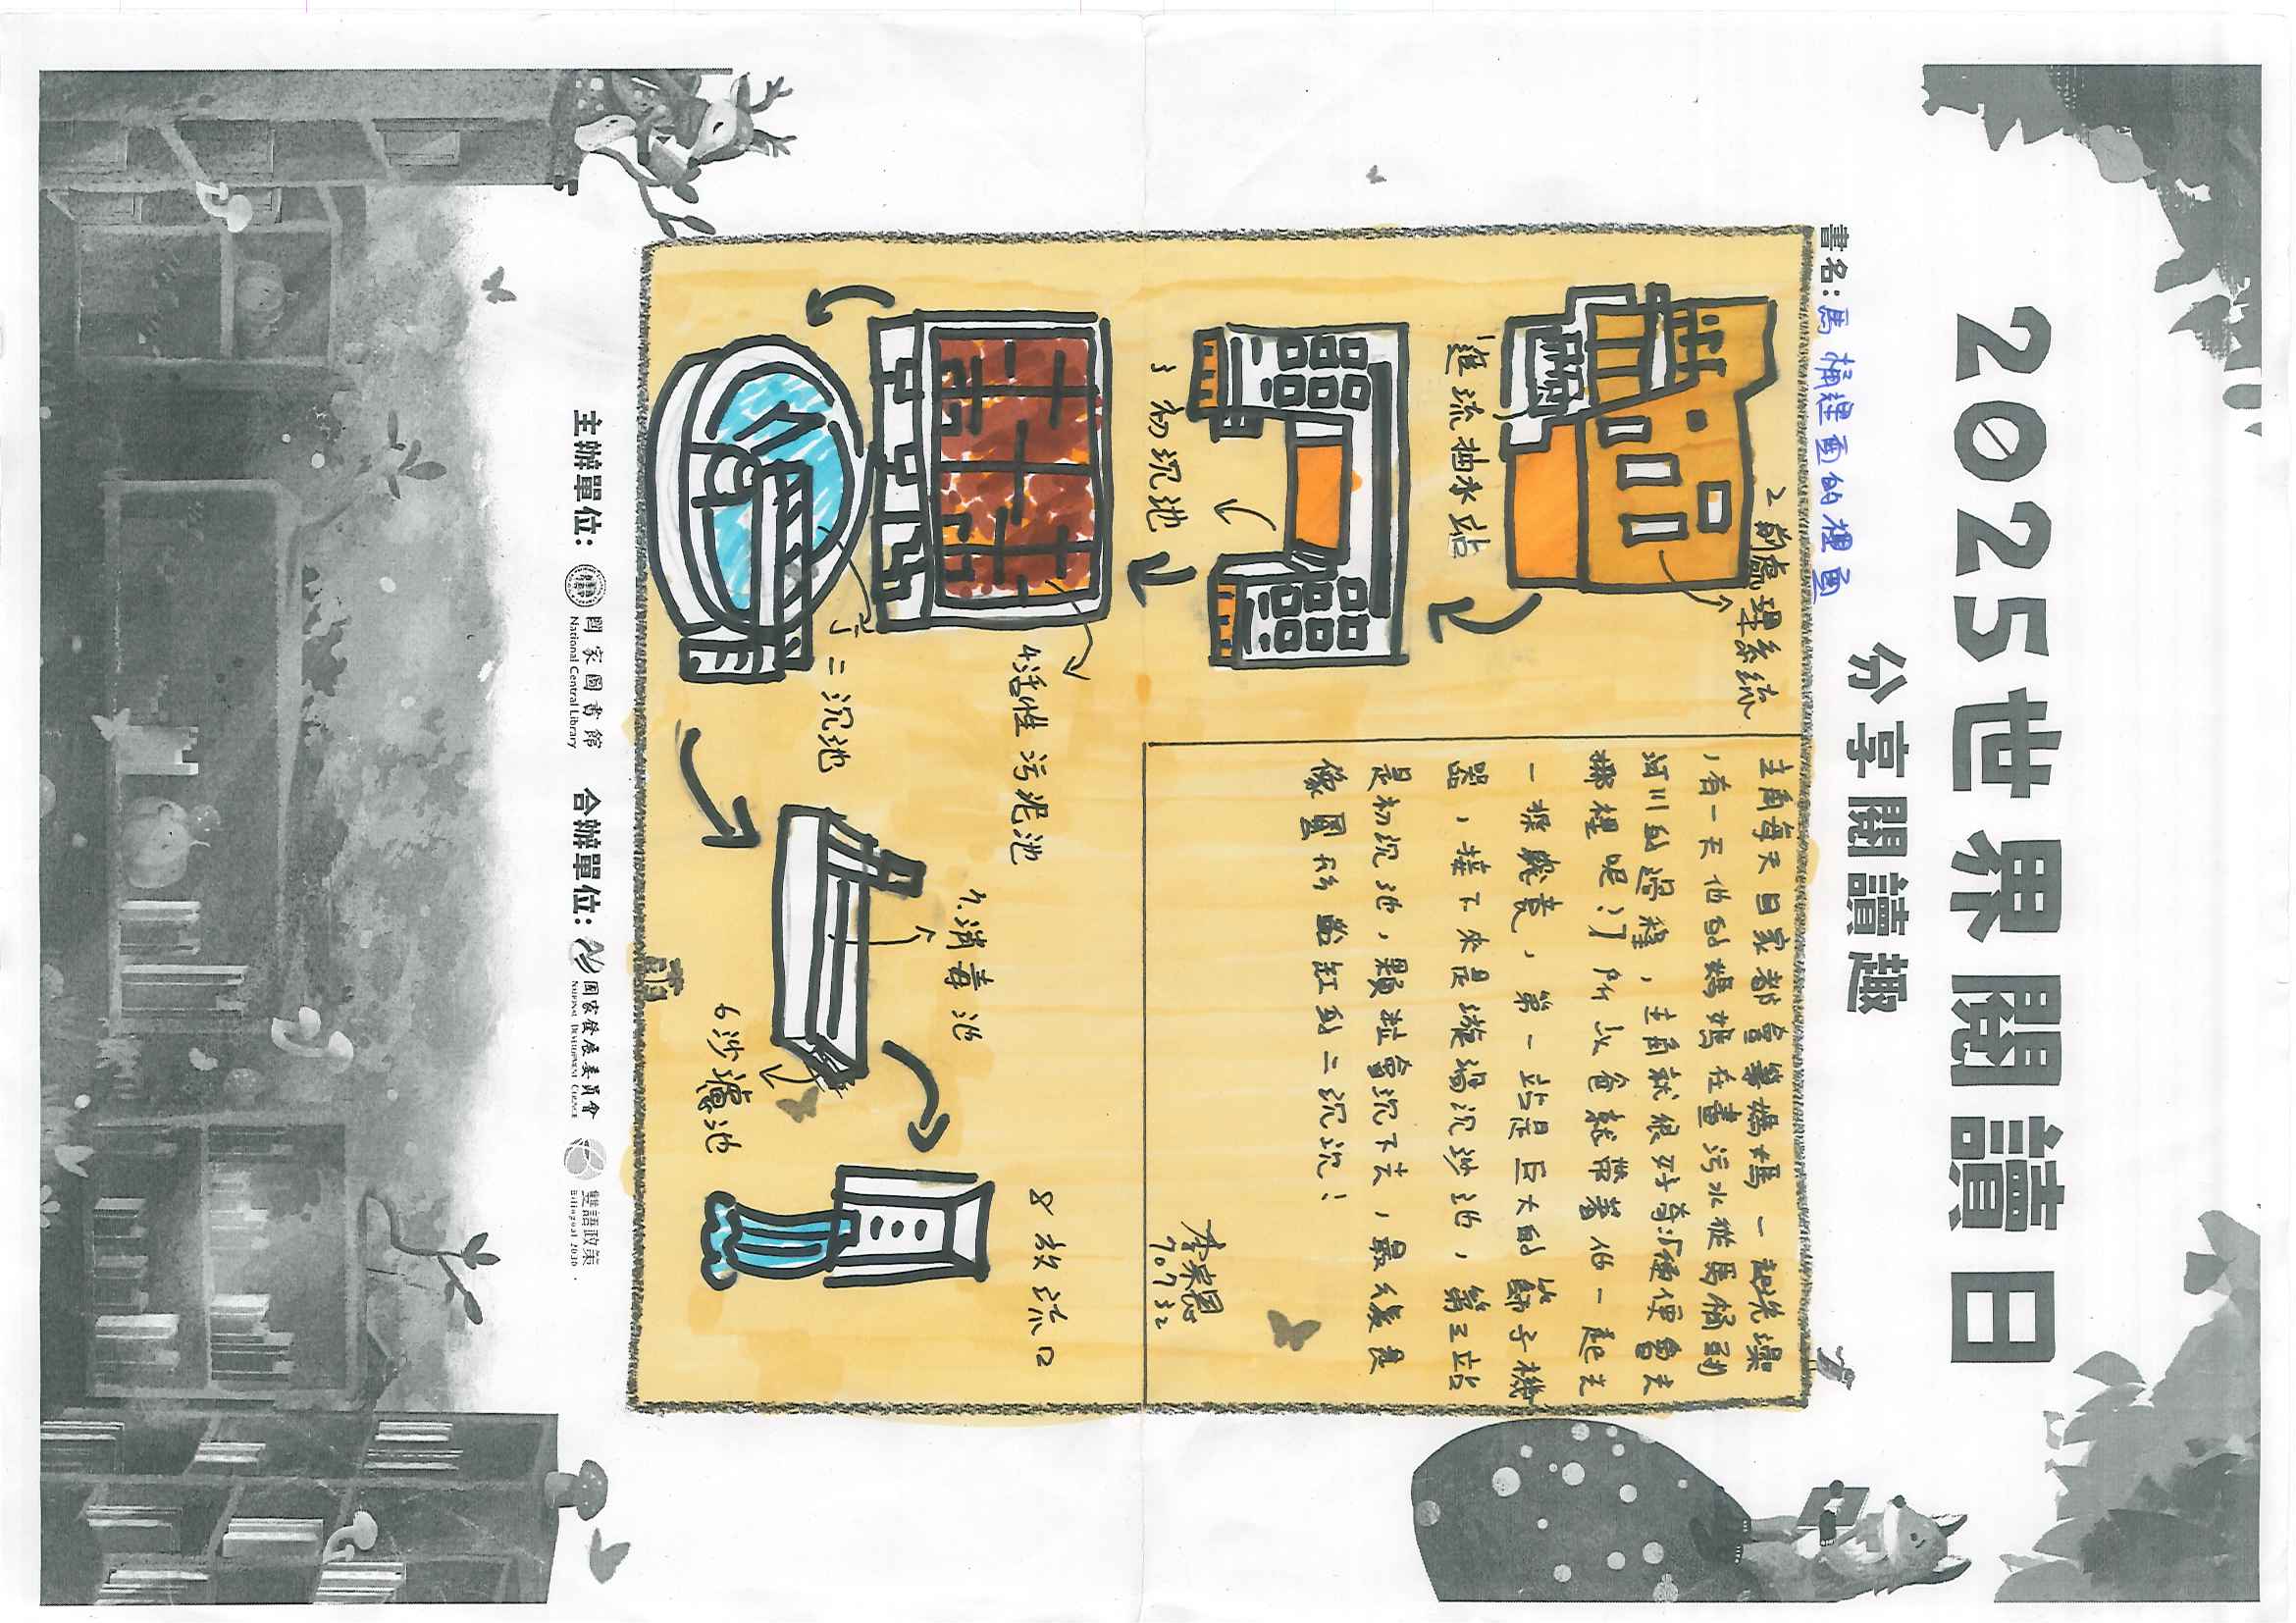 2025世界閱讀日
分享閱讀趣
書名:馬桶裡面的裡面
2 前處理系統
1進流抽水站
3 初沉池
4活性污泥池
5 二沉池
6 沙濾池
7.消毒池
8 放流口
主角每天回家都會幫媽媽一起洗澡
,有一天他的媽媽在畫污水從馬桶到
河川的過程,主角就很好奇「便便會去
哪裡呢?」所以爸爸就帶著他一起去
一探究竟,第一站是巨大的篩子機
器,接下來是漩渦沉沙池,第三站
是初沉池,顆粒會沉下去,最後是
像圓形
到二沉沉!
70732
主辦單位:
國家圖書館
National Central Library
合辦單位:
國家發展委員會
National Development Council
雙語政策
Bilingual 2030